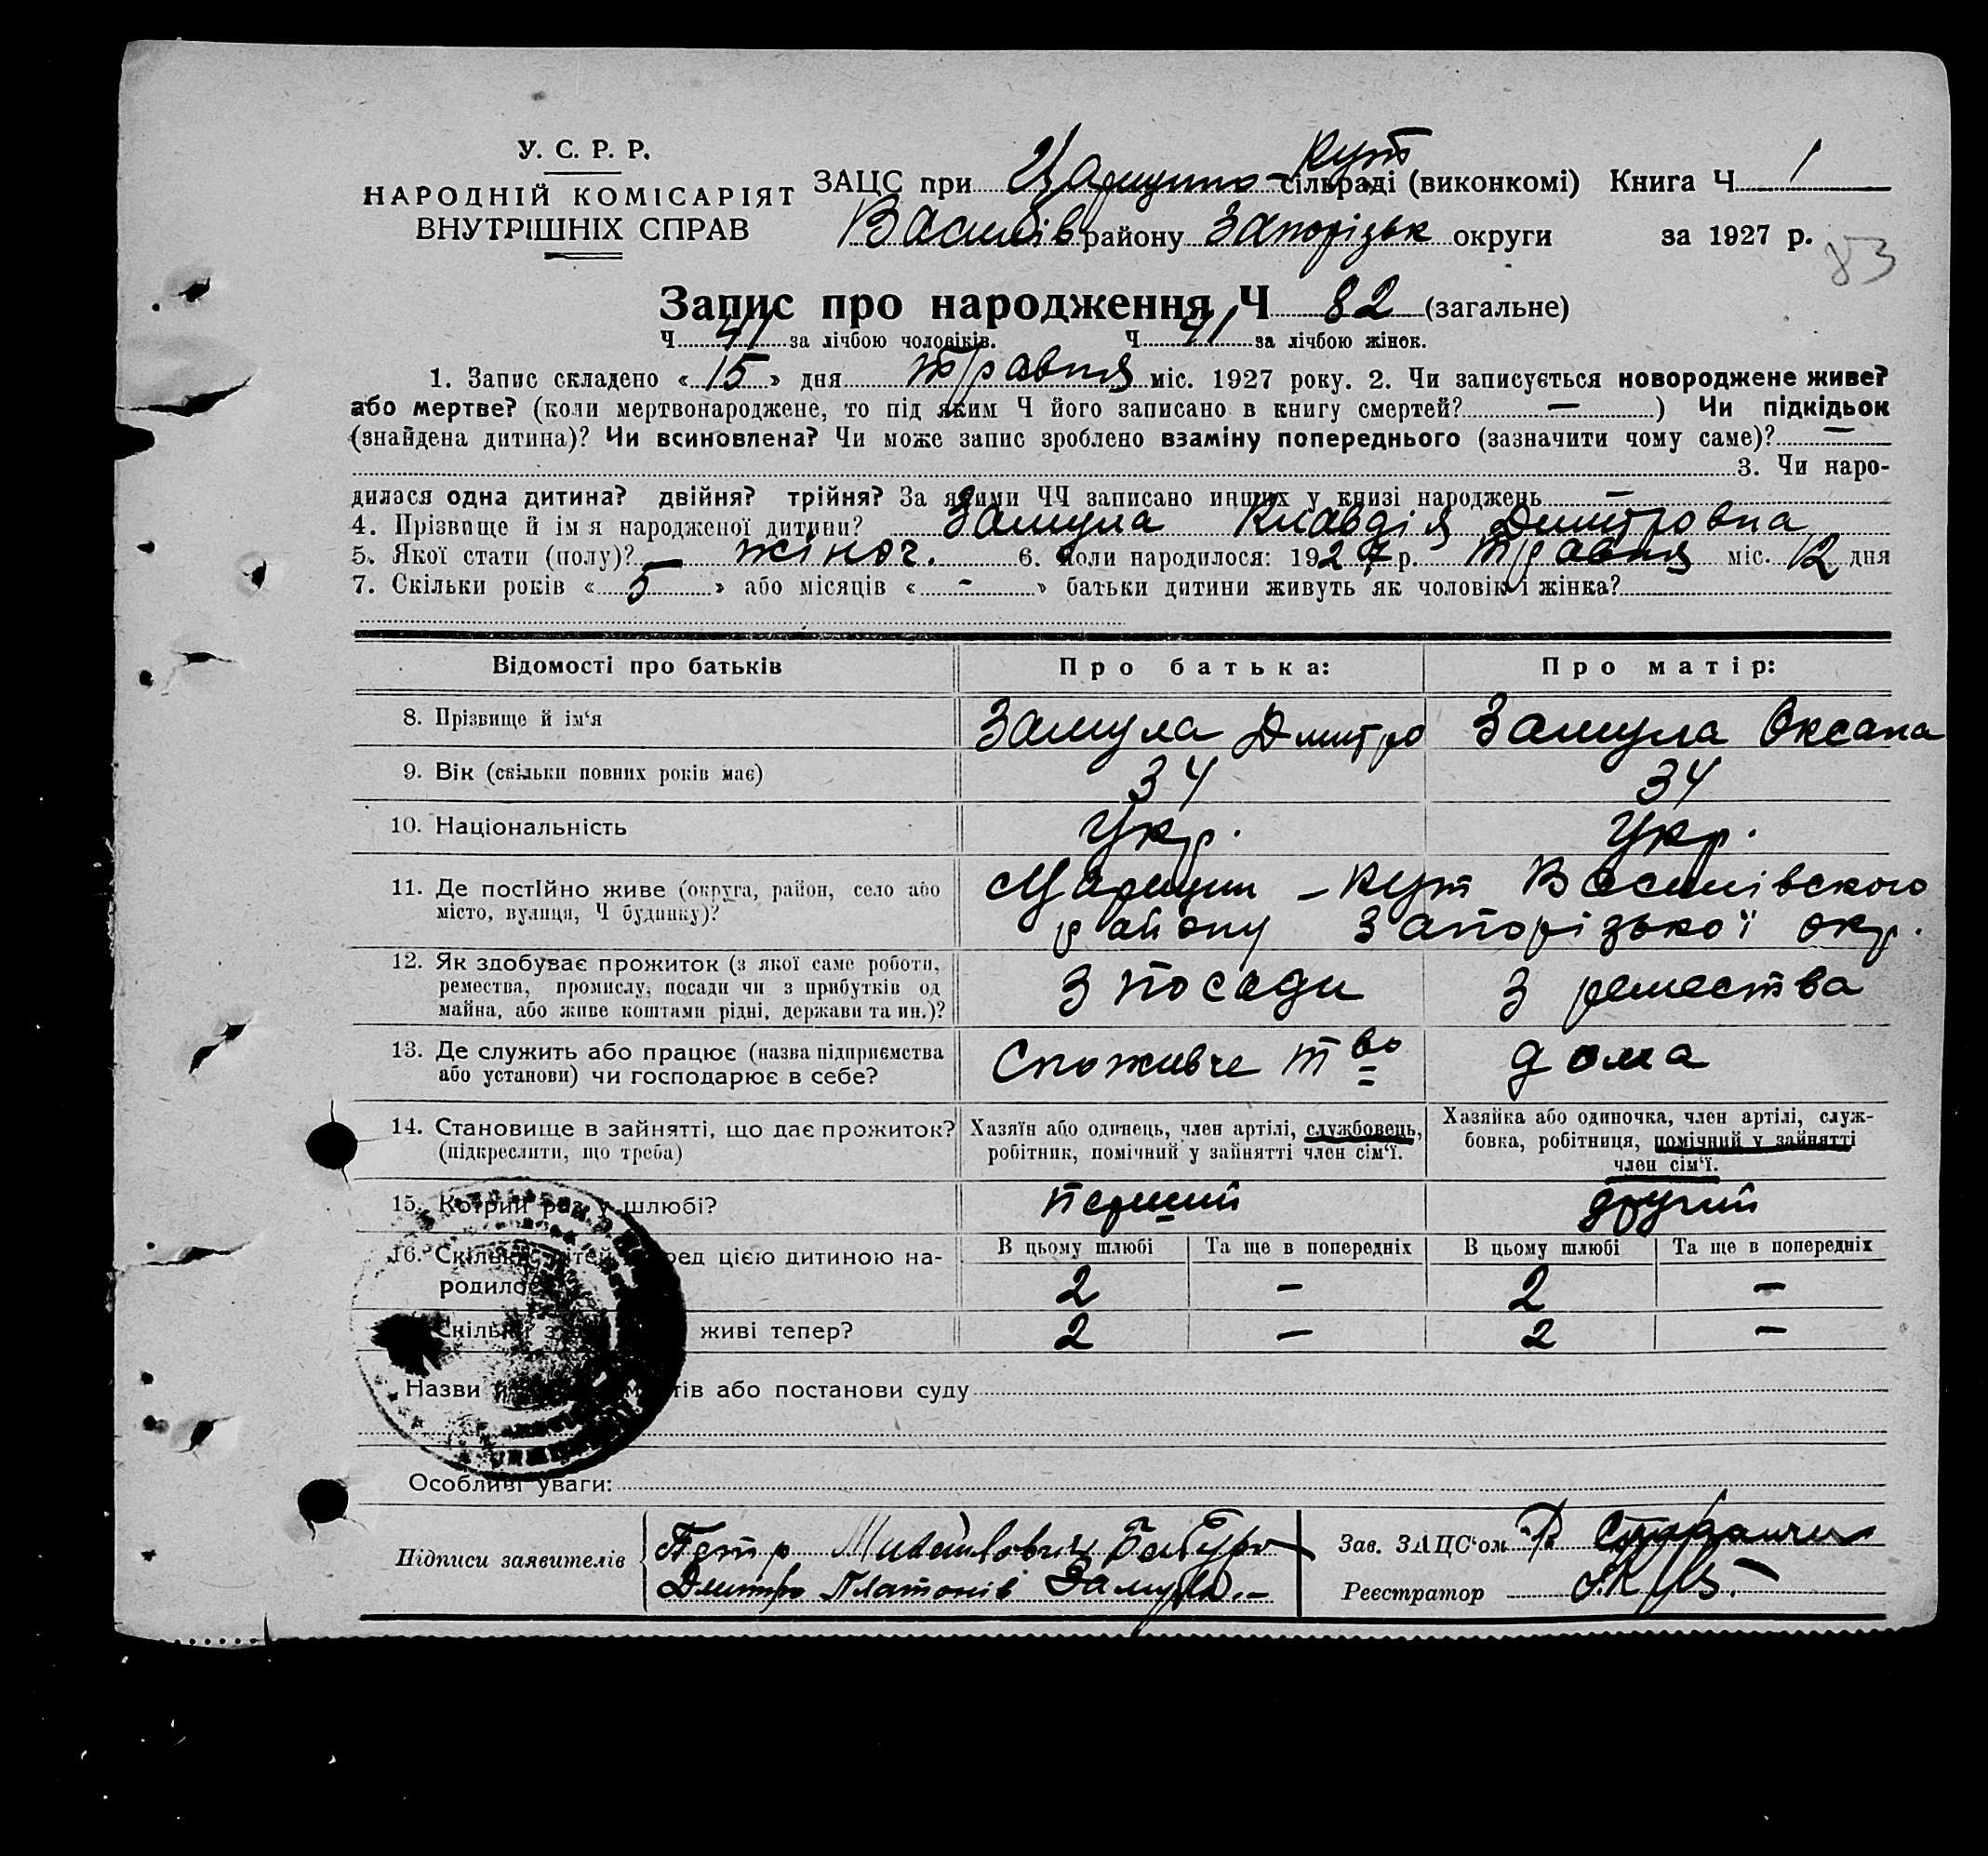 У. С. Р. Р.
НАРОДНІЙ КОМІСАРІЯТ
ВНУТРІШНІХ СПРАВ
Кут
ЗАЦС при Царицино- сільраді (виконкомі) Книга Ч 1
Василів району Запорізьк округи за 1927 р.
83
Запис про народження Ч 82 (загальне)
Ч 41 за лічбою чоловіків. Ч 41 за лічбою жінок.
1. Запис складено «15» дня травня міс. 1927 року. 2. Чи записується новороджене живе?
або мертве? (коли мертвонароджене, то під яким Ч його записано в книгу смертей? — ) Чи підкідьок
(знайдена дитина)? Чи всиновлена? Чи може запис зроблено взаміну попереднього (зазначити чому саме)? —
3. Чи наро-
дилася одна дитина? двійня? трійня? За якими ЧЧ записано инших у книзі народжень —
4. Прізвище й ім я народженої дитини? Замула Клавдія Дмитровна
5. Якої стати (полу)? — жіноч. 6. Коли народилося: 1927 р. травня міс. 12 дня
7. Скільки років «5» або місяців «-» батьки дитини живуть як чоловік і жінка?
Відомості про батьків Про батька: Про матір:
8. Прізвище й ім‘я Замула Дмитро Замула Оксана
9. Вік (скільки повних років має) 34 34
10. Національність Укр. Укр.
11. Де постІйно живе (округа, район, село або Царицин - Кут Василівского
місто, вулиця, Ч будинку)? району Запорізької окр.
12. Як здобуває прожиток (з якої саме роботи,
ремества, промислу, посади чи з прибутків од з посади з ремества
майна, або живе коштами рідні, держави та ин.)?
13. Де служить або працює (назва підприємства Споживче т во дома
або установи) чи господарює в себе?
14. Становище в зайнятті, що дає прожиток? Хазяїн або одинець, член артілі, службовець, Хазяйка або одиночка, член артілі, служ-
(підкреслити, що треба) робітник, помічний у зайнятті член сім‘ї. бовка, робітниця, помічний у зайнятті
член сім‘ї.
15. Котрий раз у шлюбі? перший другий
16. Скільки дітей перед цією дитиною на- В цьому шлюбі Та ще в попередніх В цьому шлюбі Та ще в попередніх
родилося 2 — 2 —
Скільки з живі тепер? 2 — 2 —
Назви й тів або постанови суду
Особливі уваги:
Підписи заявителів Петр Михайлович Зав. ЗАЦС‘ом
Дмитро Платонів Замула.- Реєстратор